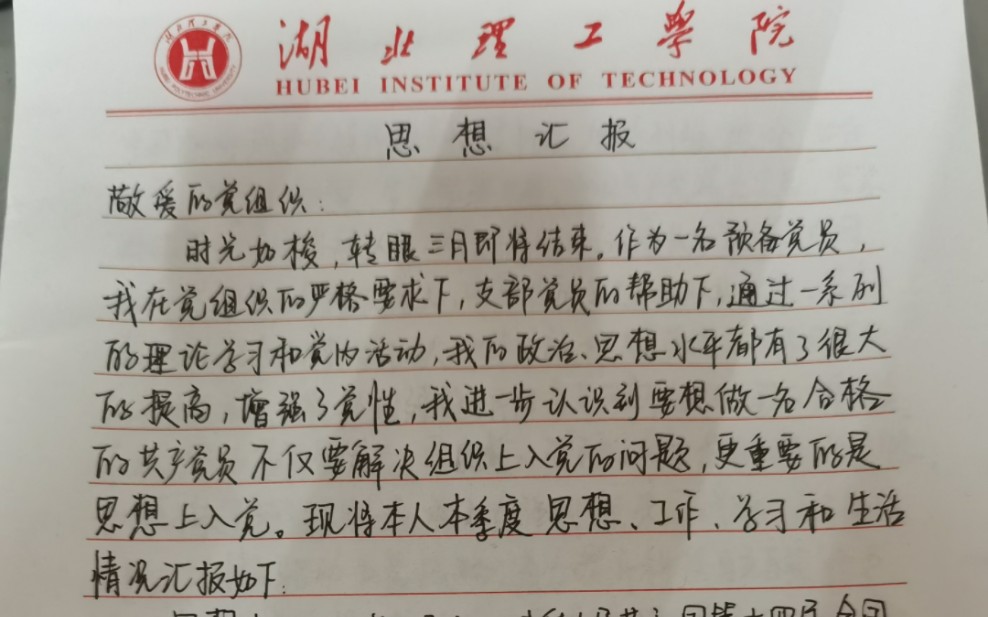 湖北理工学院
HUBEI INSTITUTE OF TECHNOLOGY
思想汇报
敬爱的党组织：
时光如梭，转眼三月即将结束。作为一名预备党员，
我在党组织的严格要求下，支部党员的帮助下，通过一系列
的理论学习和党内活动，我的政治、思想水平都有了很大
的提高，增强了党性，我进一步认识到要想做一名合格
的共产党员不仅要解决组织上入党的问题，更重要的是
思想上入党。现将本人本季度思想、工作、学习和生活
情况汇报如下：